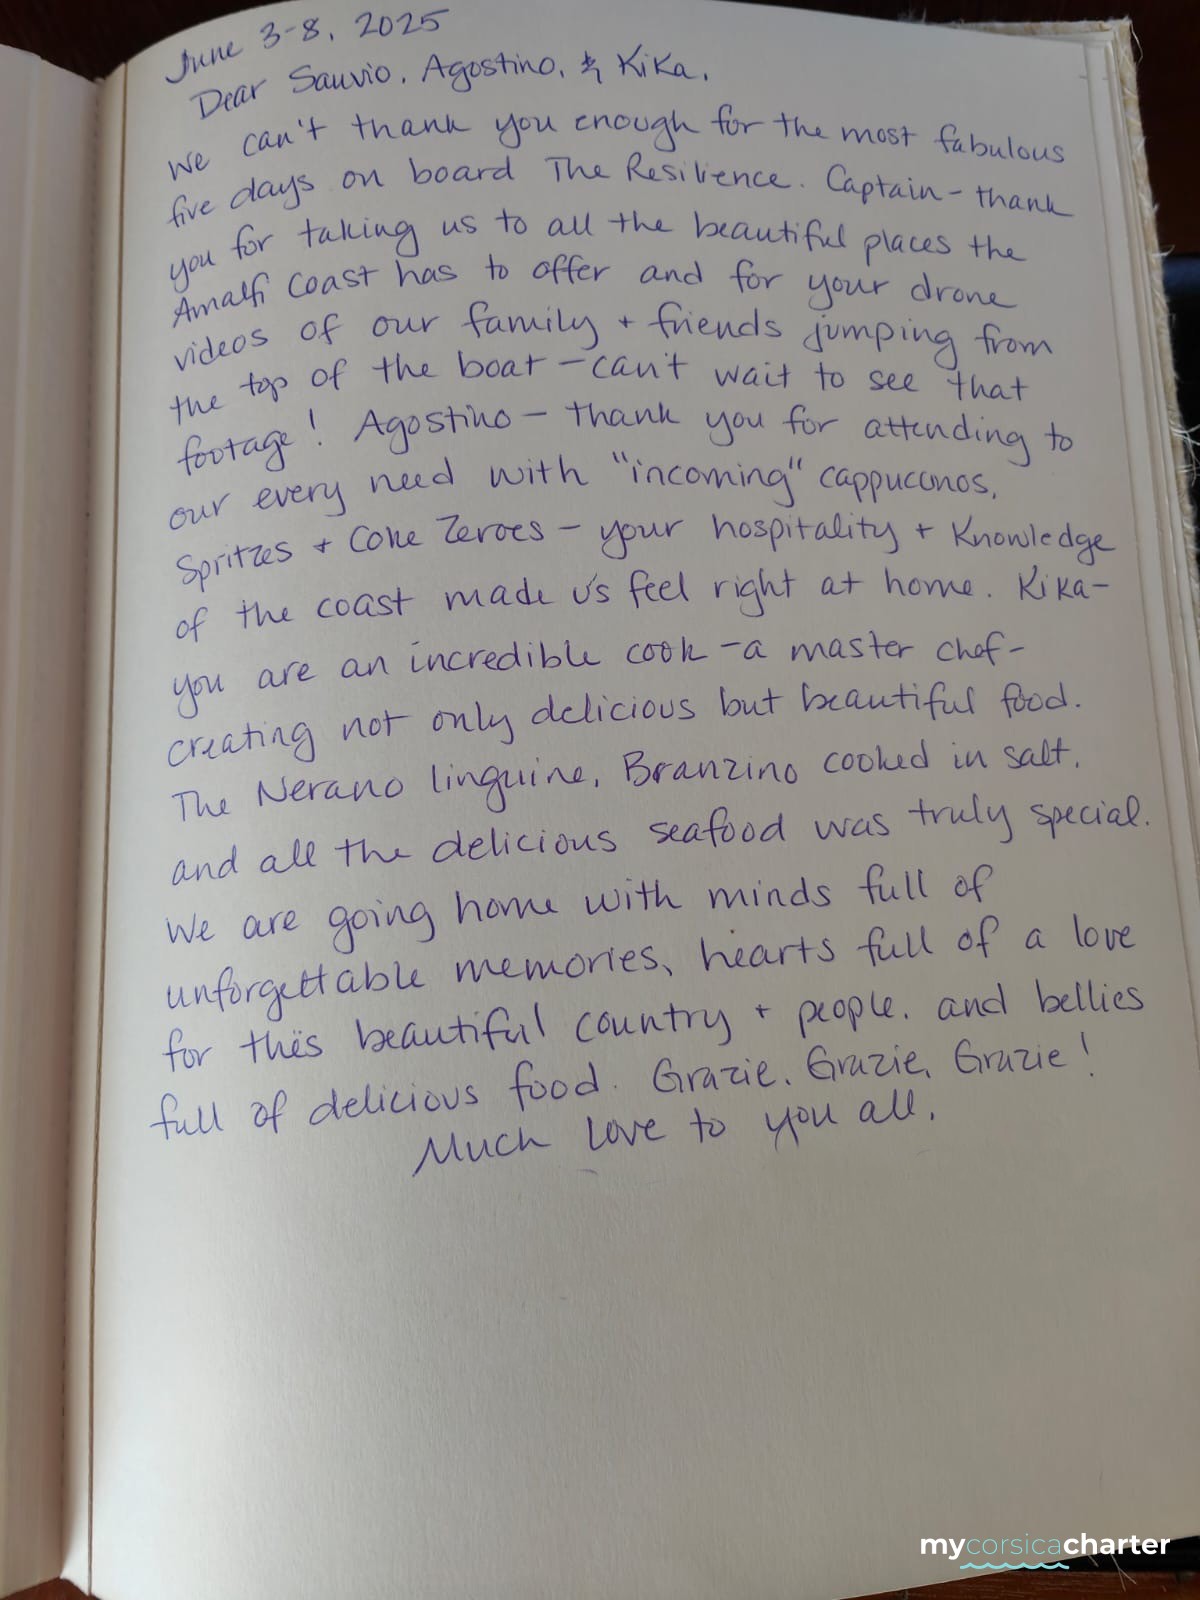 June 3-8, 2025
Dear Sauvio, Agostino, & Kika,
We can't thank you enough for the most fabulous
five days on board The Resilience. Captain - thank
you for taking us to all the beautiful places the
Amalfi Coast has to offer and for your drone
videos of our family + friends jumping from
the top of the boat - can't wait to see that
footage! Agostino - thank you for attending to
our every need with "incoming" cappuccinos,
Spritzes + Coke Zeroes - your hospitality + Knowledge
of the coast made us feel right at home. Kika-
you are an incredible cook - a master chef-
creating not only delicious but beautiful food.
The Nerano linguine, Branzino cooked in salt,
and all the delicious seafood was truly special.
We are going home with minds full of
unforgettable memories, hearts full of a love
for this beautiful country + people, and bellies
full of delicious food. Grazie, Grazie, Grazie!
Much love to you all,
mycorsicacharter